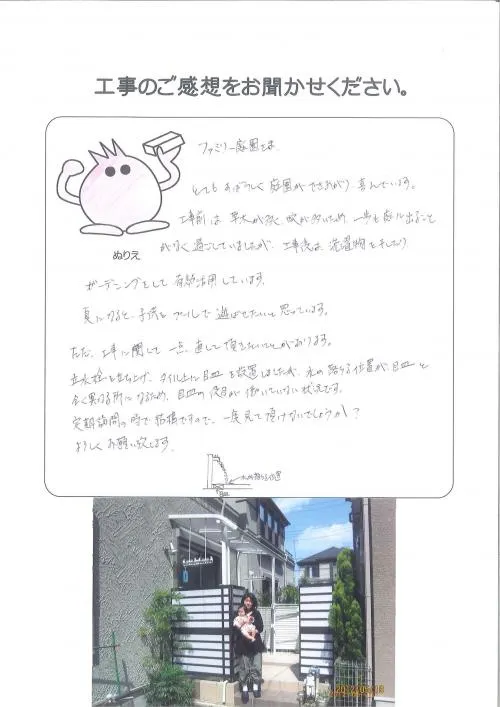 工事のご感想をお聞かせください。
ファミリー庭園さま
とてもすばらしく庭園ができあがり、喜んでいます。
工事前は草木が多く、蚊が多いため、一歩も庭に出ること
がなく過ごしていましたが、工事後は、洗濯物を干したり
ぬりえ
ガーデニングをして有効活用しています。
夏になると、子供をプールで遊ばせたいと思っています。
ただ、工事に関して一点、直して頂きたいことがあります。
立水栓を立ち上げ、タイル上に目皿を設置しましたが、水の落ちる位置が、目皿と
全く異なる所になるため、目皿の役目が働いていない状況です。
定期訪問の時で結構ですので、一度見て頂けないでしょうか?
よろしくお願い致します。
水の落ちる位置
目皿